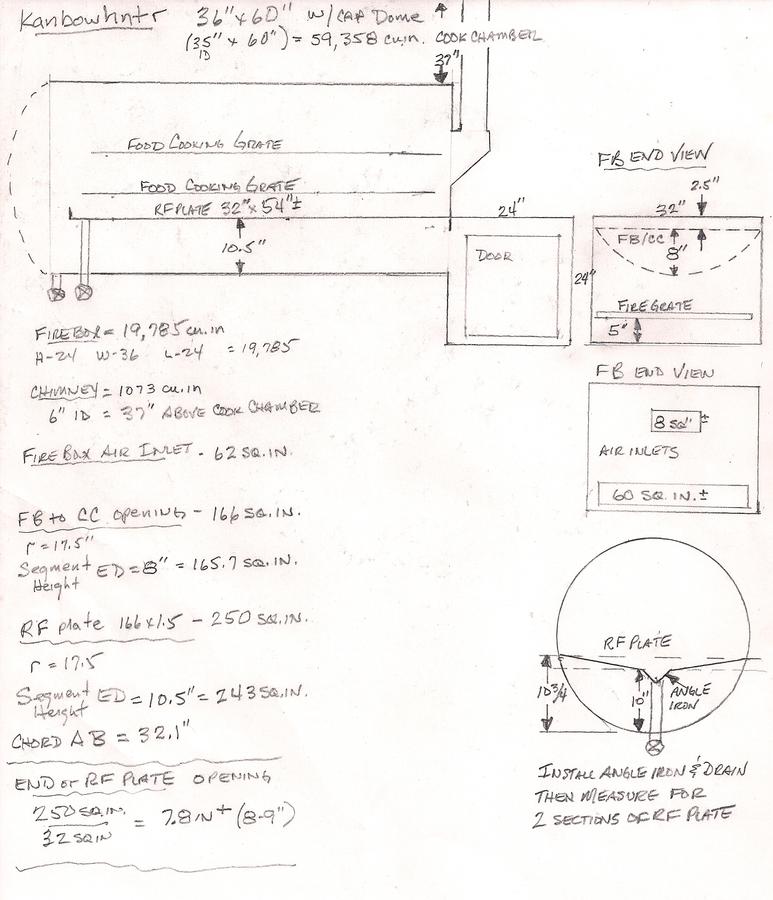 Kanbowhntr 36"x60" w/ CAP Dome
(35" x 60") = 59,358 cu.in. COOK CHAMBER
ID
37"
FOOD COOKING GRATE
FOOD COOKING GRATE
RF PLATE 32"x54"±
10.5"
24"
DOOR
FB END VIEW
2.5"
32"
FB/CC
8"
24"
FIRE GRATE
5"
FIRE BOX = 19,785 cu.in
H-24 W-36 L-24 = 19,785
CHIMNEY = 1073 cu.in
6" ID = 37" ABOVE COOK CHAMBER
FIRE BOX AIR INLET - 62 SQ.IN.
FB END VIEW
8 SQ" ±
AIR INLETS
60 SQ.IN.±
FB to CC OPENING - 166 SQ.IN.
r = 17.5"
Segment Height ED = 8" = 165.7 SQ.IN.
RF plate 166x1.5 - 250 SQ.IN.
r = 17.5
Segment Height ED = 10.5" = 243 SQ.IN.
CHORD AB = 32.1"
END of RF PLATE OPENING
250 SQ.IN.
32 SQ IN = 7.8 IN + (8-9")
RF PLATE
10 3/4
10"
ANGLE IRON
INSTALL ANGLE IRON & DRAIN
THEN MEASURE FOR
2 SECTIONS OF RF PLATE